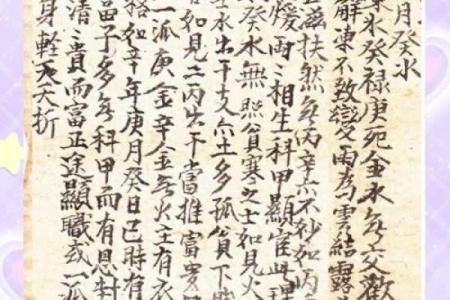 月癸水
氷癸祿庚死金水無交歡
解凍不致變雨為雲結露
滋扶然無丙辛亦不妙如丙
煖両々相生科甲顕宦此理
癸水無照貧寒之士如見火
水出干支亦土多孤貧下賤
如見二丙出干當推富
一派庚金辛金無火主有衣
格如辛年庚月癸日巳時有
富子多無科甲而有恩封
清々貴而富正途顯職或一派
身輕夭折